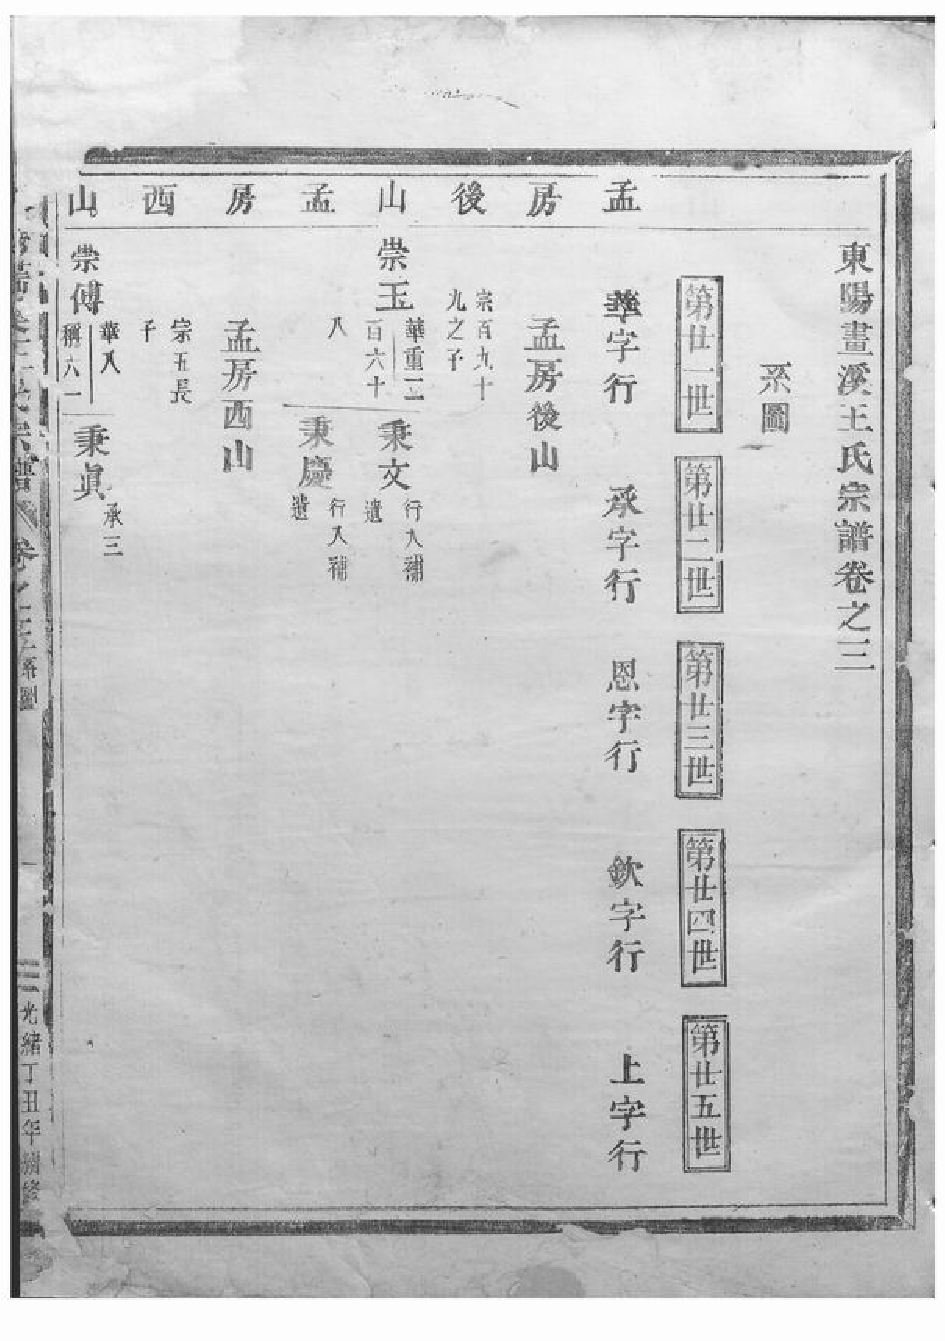 東陽畫溪王氏宗譜卷之三
系圖
第廿一世
第廿二世
第廿三世
第廿四世
第廿五世
孟房後山孟房西山
華字行
承字行
恩字行
欽字行
上字行
孟房後山
宗百九十
九之子
崇玉
華重二
百六十
八
秉文
行入補
遺
秉慶
行入補
遺
孟房西山
宗五長
子
崇傅
華八
稱六一
秉眞
承三
卷之三
系圖
光緒丁丑年